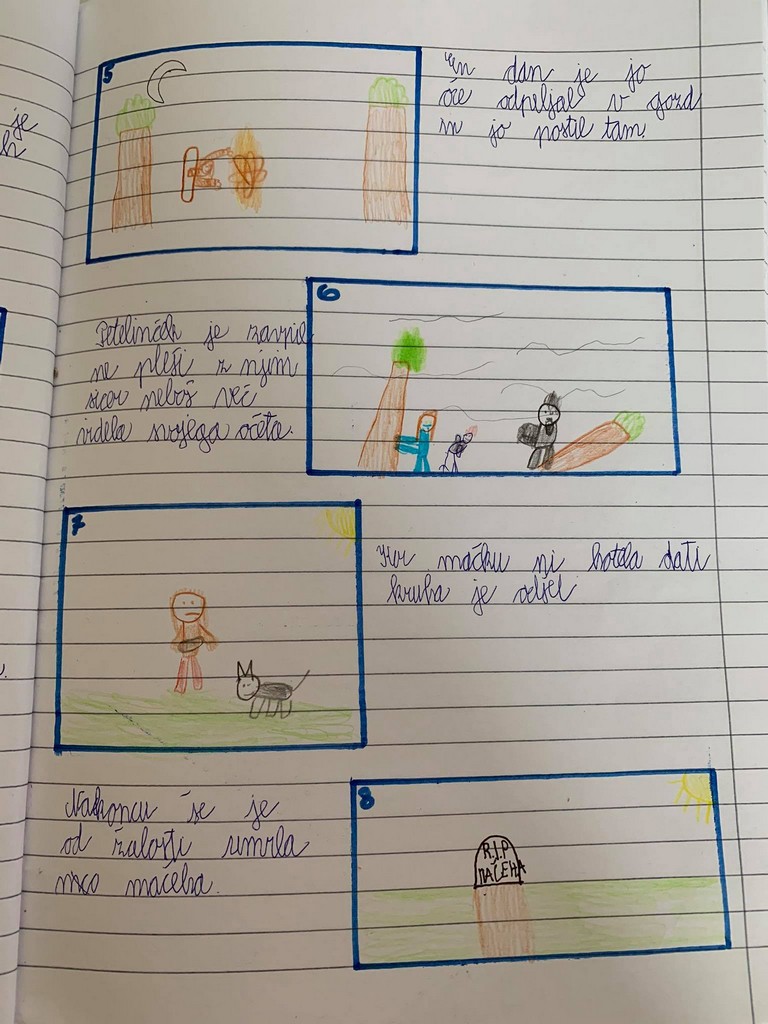 je
h
5
En dan je jo
oče odpeljal v gozd
in jo postil tam.
6
Petelinček je zavpil
ne pleši z njim
sicer neboš več
videla svojega očeta.
7
Ker mačku ni hotela dati
kruha je odšel
8
Nakoncu še je
od žalosti umrla
mačeha.
R.I.P
MAČEHA